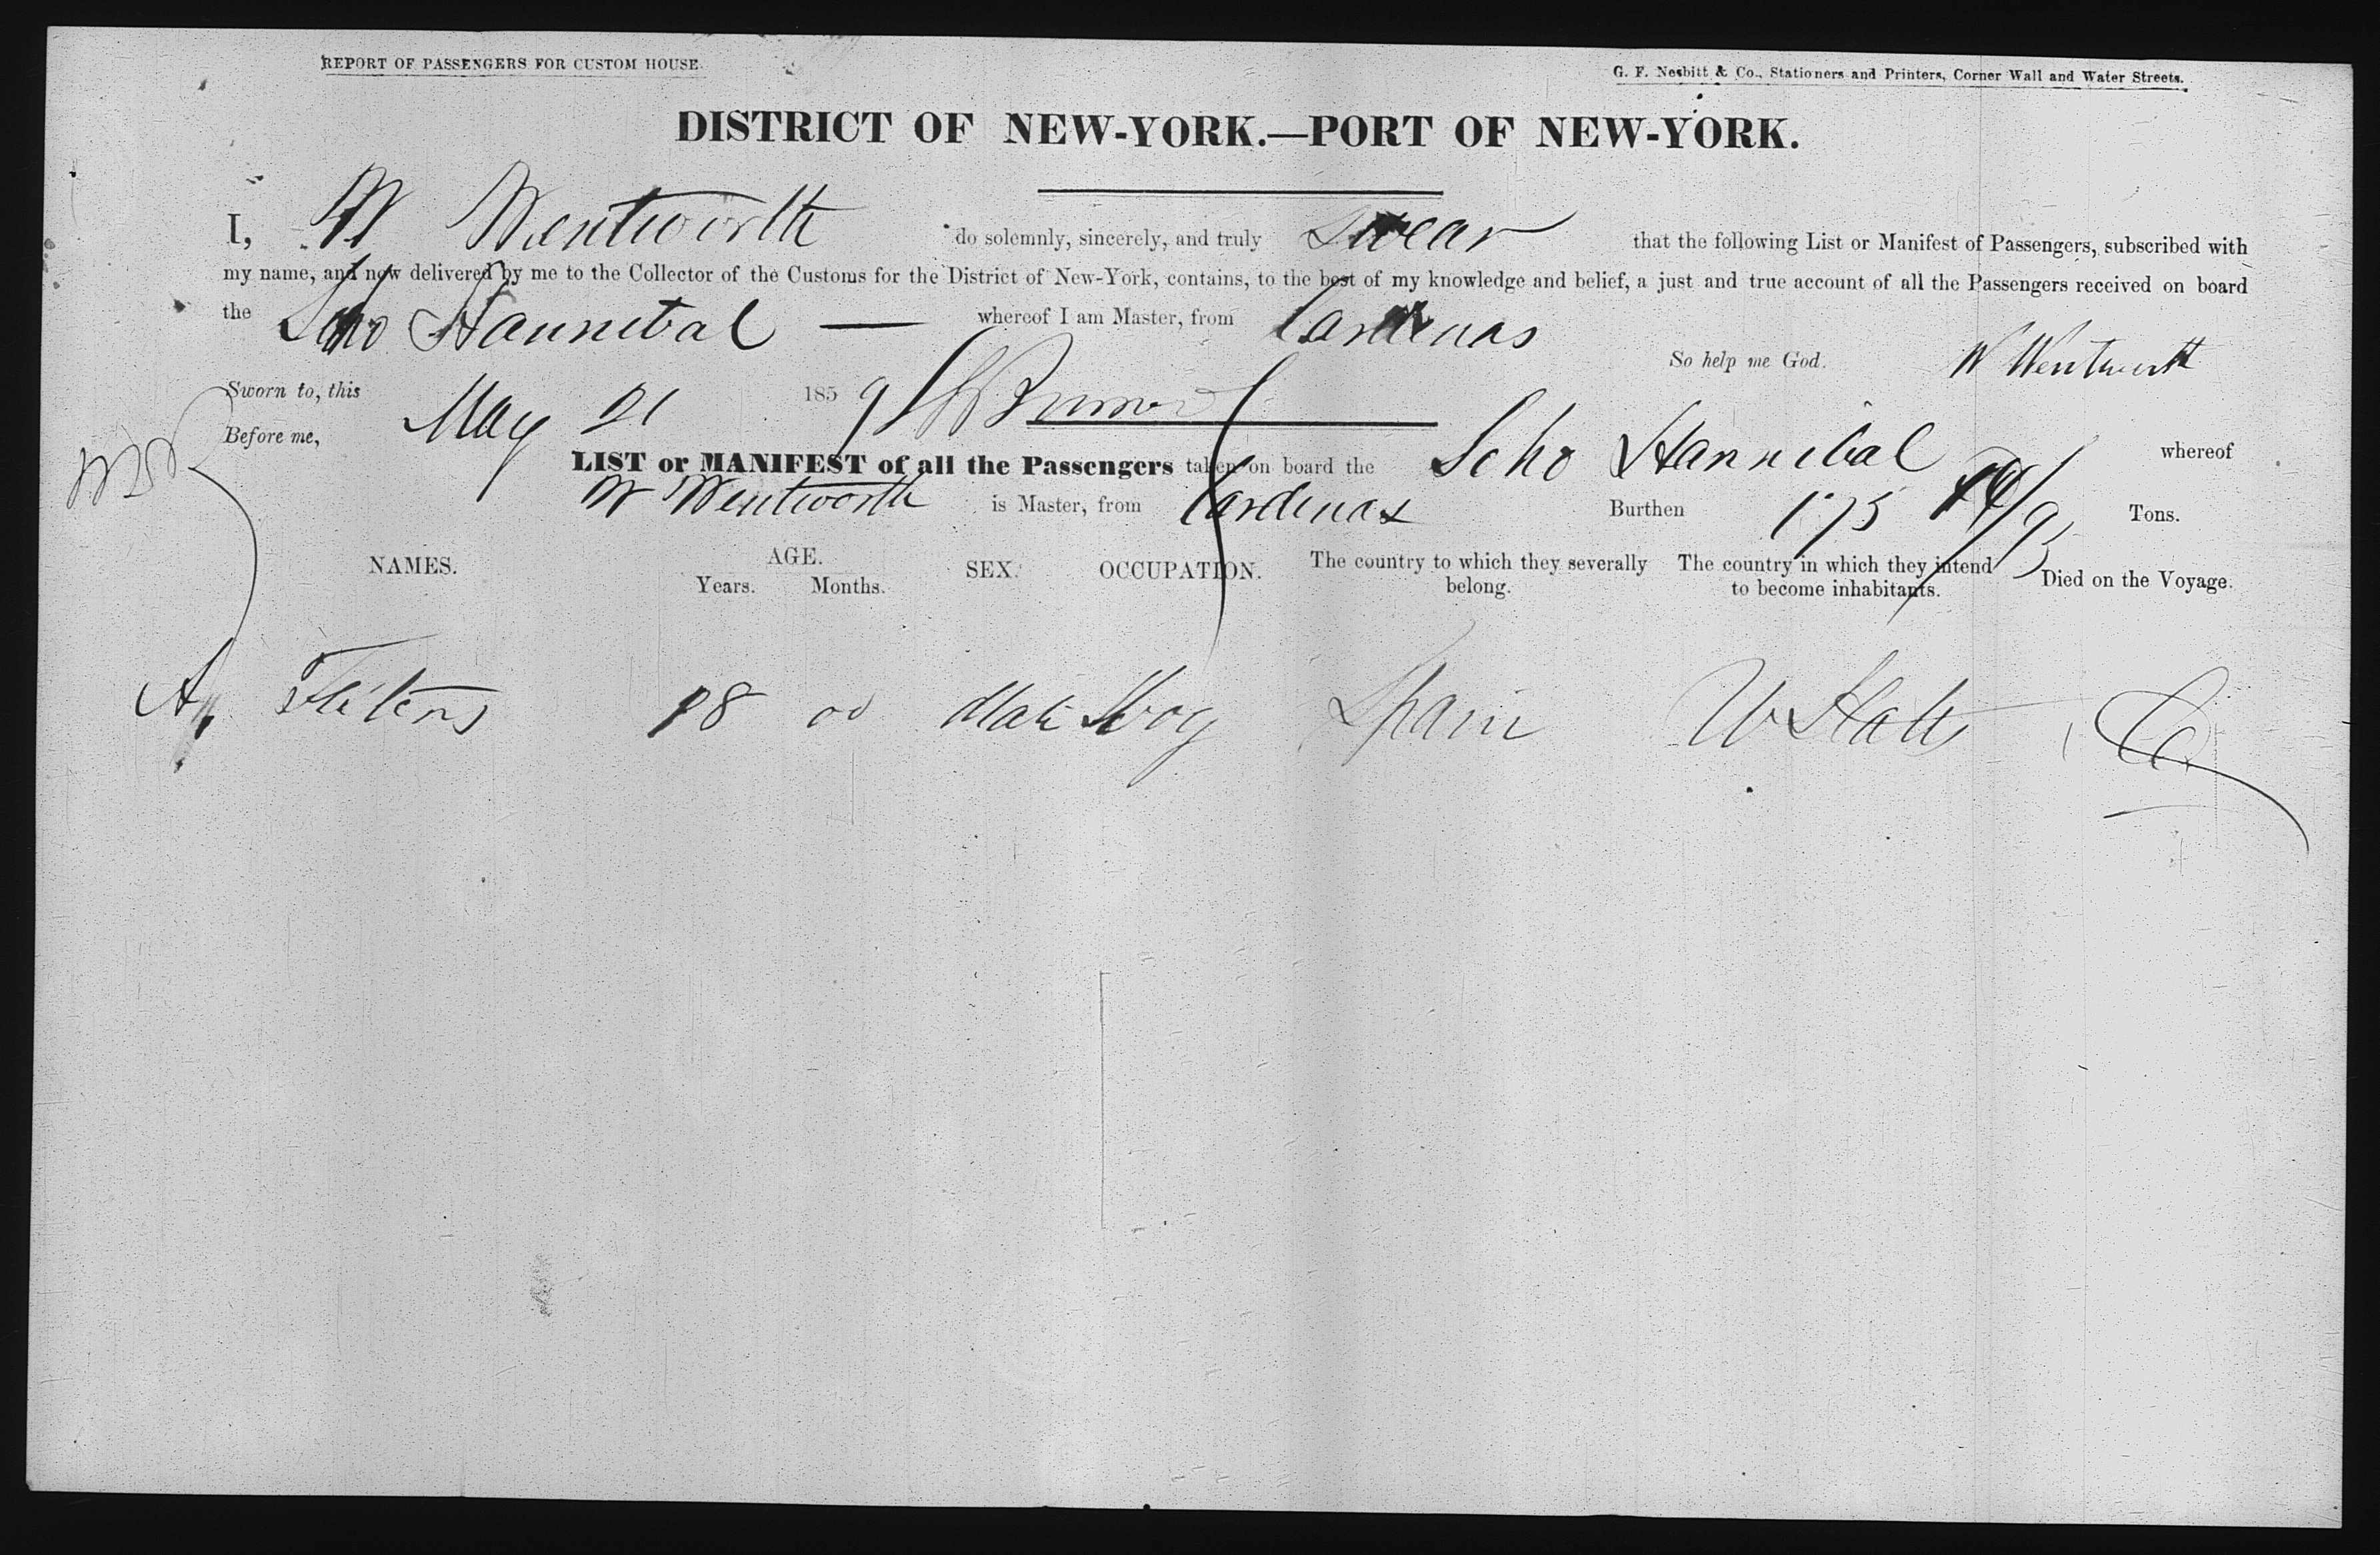 REPORT OF PASSENGERS FOR CUSTOM HOUSE.
G. F. Nesbitt & Co., Stationers and Printers, Corner Wall and Water Streets.
DISTRICT OF NEW-YORK.—PORT OF NEW-YORK.
I, W Wentworth do solemnly, sincerely, and truly swear that the following List or Manifest of Passengers, subscribed with
my name, and now delivered by me to the Collector of the Customs for the District of New-York, contains, to the best of my knowledge and belief, a just and true account of all the Passengers received on board
the Scho Hannibal — whereof I am Master, from Cardenas
So help me God. W Wentworth
Sworn to, this May 21 1859
Before me,
LIST or MANIFEST of all the Passengers taken on board the Scho Hannibal whereof
W Wentworth is Master, from Cardenas Burthen 175 /95 Tons.
NAMES. AGE. Years. Months. SEX. OCCUPATION. The country to which they severally belong. The country in which they intend to become inhabitants. Died on the Voyage.
A 18 00 Male Spain U States